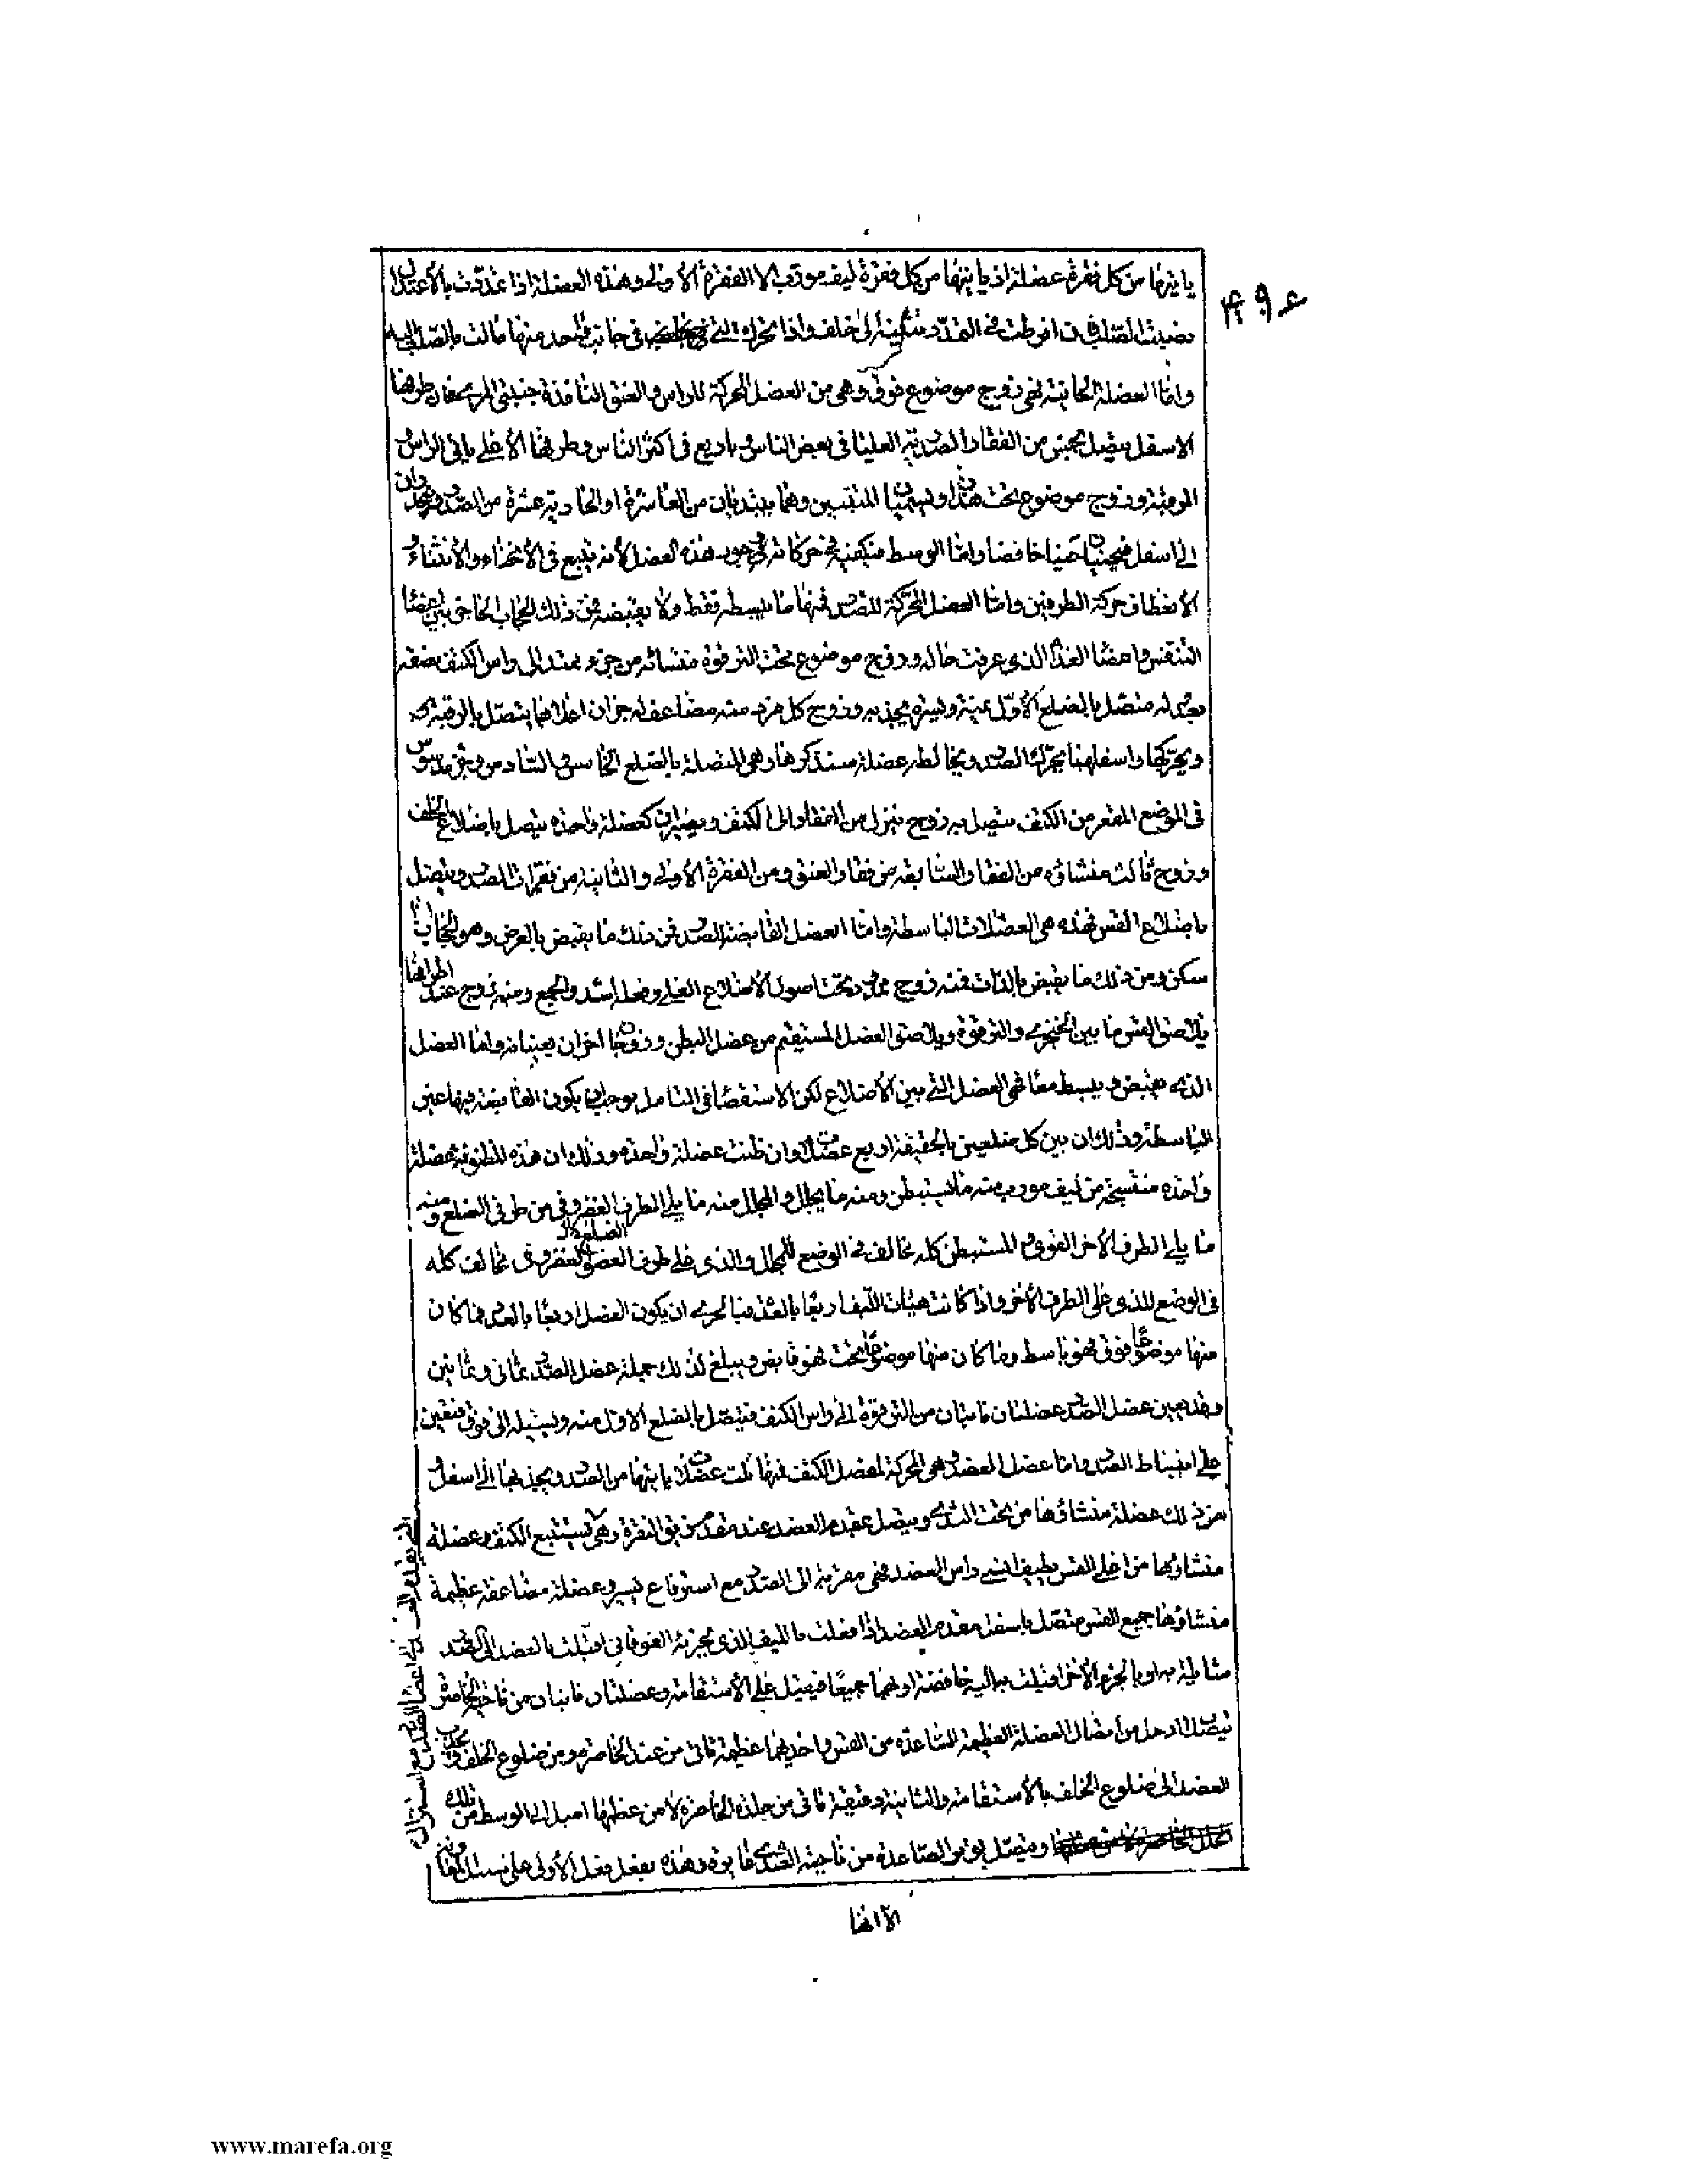 ياتيها من كل فقرة عضلة اذ ياتيها من كل فقرة ليف مورب الا الفقرة الاولى وهذه العضلة اذا تمددت بالاعتدال
٤٩٤
نصبت الصلب فان افرطت في التمدد ثنته الى خلف واذا تحركت التي في جانب واحد منها مالت بالصلب اليه
واما العضلة الحانية فهي زوج موضوع فوق وهي من العضل المحركة للراس والعنق النافذة جنبتي المري طرفها
الاسفل يتصل بخمس من الفقار الصدرية العليا في بعض الناس وباربع في اكثر الناس وطرفها الاعلى ياتي الراس و
الرقبة وزوج موضوع تحت هذا ويسميان المتنين وهما يبتديان من العاشرة او الحادية عشرة من الصدر وينحدران
الى اسفل فيحنيان حنيا خافضا واما الوسط فيكفيه في حركاته وجود هذه العضل لانه يتبع في الانحناء والانثناء و
الانعطاف حركة الطرفين واما العضل المحركة للصدر فمنها ما يبسطه فقط ولا يقبضه فمن ذلك الحجاب الحاجز بين اعضاء
التنفس واعضاء الغذاء الذي عرفت حاله وزوج موضوع تحت الترقوة منشائه من جزء يمتد الى راس الكتف
متصل بالضلع الاول يمنة ويسرة يجذبه وزوج كل فرد منه مضاعف له جزان اعلاهما يتصل بالرقبة
ويحركها واسفلهما يحرك الصدر ويخالطه عضلة سنذكرها وهي المتصلة بالضلع الخامس والسادس وزوج مدسوس
في الموضع المقعر من الكتف يتصل به زوج ينزل من الفقار الى الكتف ويصيران كعضلة واحدة يتصل باضلاع الخلف
وزوج ثالث منشاؤه من الفقار السابقة من فقار العنق ومن الفقرة الاولى والثانية من فقرات الصدر ويتصل
باضلاع القس فهذه هي العضلات الباسطة واما العضل القابضة للصدر فمن ذلك ما يقبض بالعرض وهو الحجاب اذا
سكن ومن ذلك ما يقبض بالذات فمنه زوج ممدود تحت اصول الاضلاع العليا وفعله الشد والجمع ومنه زوج عند اطرافها
يلاصق القس ما بين الخنجري والترقوة ويلاصق العضل المستقيم من عضل البطن وزوجان اخران يعينانه واما العضل
الذي يقبض ويبسط معا فهي العضل التي بين الاضلاع لكن الاستقصاء في التامل يوجب ان يكون القابضة فيها غير
الباسطة وذلك ان بين كل ضلعين بالحقيقة اربع عضلات وان ظنت عضلة واحدة وذلك ان هذه المظنونة عضلة
واحدة منتسجة من ليف مورب منه ما يستبطن ومنه ما يجلل والمجلل منه ما يلي الطرف الغضروفي من طرفي الضلع ومنه
ما يلي الطرف الاخر القوي والمستبطن كله مخالف في الوضع للمجلل والذي على طرف العضو الغضروفي مخالف كله
في الوضع للذي على الطرف الاخر واذا كانت هيئات الليف اربعا بالعدد فبالحري ان يكون العضل اربعا بالعدد فما كان
منها موضوعا فوق فهو باسط وما كان منها موضوعا تحت فهو قابض ويبلغ لذلك جملة عضل الصدر ثماني وثمانين
وقد يعين عضل الصدر عضلتان تاتيان من الترقوة الى راس الكتف فيتصل بالضلع الاول منه ويشيله الى فوق فيعين
على انبساط الصدر واما عضل العضد وهي المحركة لمفصل الكتف فمنها ثلث عضلات ياتيها من الصدر ويجذبها الى اسفل و
من ذلك عضلة منشاؤها من تحت الثدي ويتصل بمقدم العضد عند مقدم زيق النقرة وهي تستتبع الكتف وعضلة
منشاؤها من اعلى القس يطيف انسي راس العضد فهي مقربة الى الصدر مع استرفاع يسير وعضلة مضاعفة عظيمة
منشاؤها جميع القس متصل باسفل مقدم العضد اذا فعلت بالليف الذي لجزئه الفوقاني اقبلت بالعضد الى الصدر
شائلة به او بالجزء الاخر اقبلت به اليه خافضة او بهما جميعا فيقبل على الاستقامة وعضلتان تاتيان من ناحية الخاصرة
تتصلان ادخل من اتصال العضلة العظيمة الصاعدة من القس واحديهما عظيمة تاتي من عند الخاصرة ومن ضلوع الخلف ويجذب
العضد الى ضلوع الخلف بالاستقامة والثانية دقيقة تاتي من جلدة الخاصرة لا من عظمها اميل الى الوسط من تلك
ويتصل بوتر الصاعدة من ناحية الثدي غايرة وهذه يفعل فعل الاولى على سبيل المعاونة
الا انها
www.marefa.org